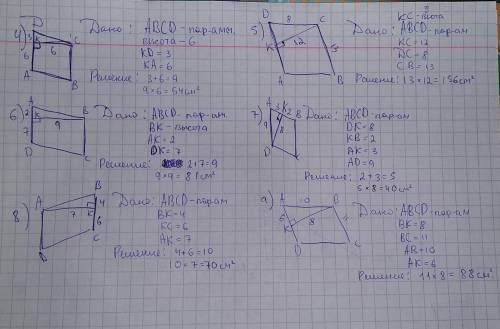 4)
D
C
3
K
6
6
A
B
Дано: ABCD - пар-амм.
высота - 6
KD = 3
KA = 6
Решение: 3+6=9
9×6=54см²
5)
D
8
C
K
12
13
A
B
KC - высота
Дано: ABCD - пар-ам
KC = 12
DC = 8
CB = 13
Решение: 13×12=156см²
6)
A
B
2
K
9
7
D
C
Дано: ABCD - пар-ам.
BK - высота
AK = 2
DK = 7
Решение: 2+7=9
9×9=81см²
7)
A
3
K
2
B
9
8
D
C
Дано: ABCD - пар-ам
DK = 8
KB = 2
AK = 3
AD = 9
Решение: 2+3=5
5×8=40см²
8)
B
A
4
7
K
6
C
Дано: ABCD - пар-ам
BK = 4
KC = 6
AK = 7
Решение: 4+6=10
10×7=70см²
9)
A
10
B
6
K
8
11
D
C
Дано: ABCD - пар-ам
BK = 8
BC = 11
AB = 10
AK = 6
Решение: 11×8=88см²